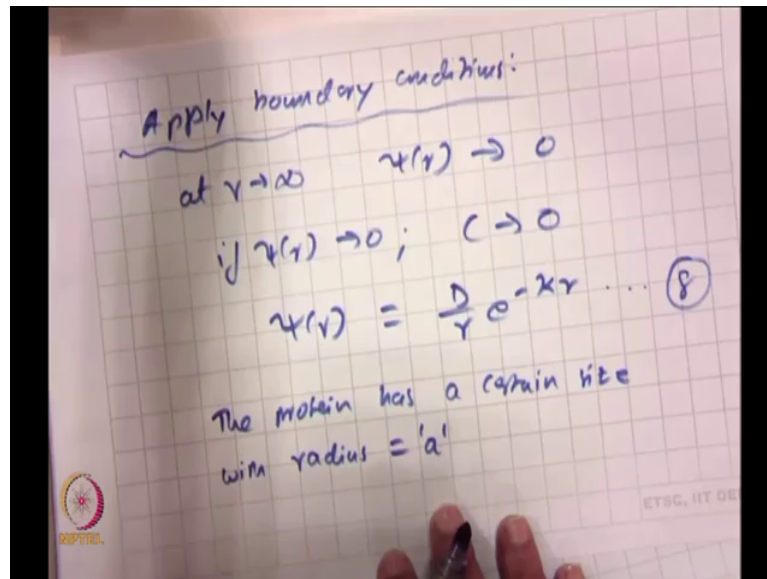 Apply boundary conditions:
at r→∞ ψ(r) → 0
if ψ(r) → 0; C → 0
ψ(r) = D/r e^-κr .... (8)
The protein has a certain size
with radius = 'a'
ETSC, IIT DE
NPTEL